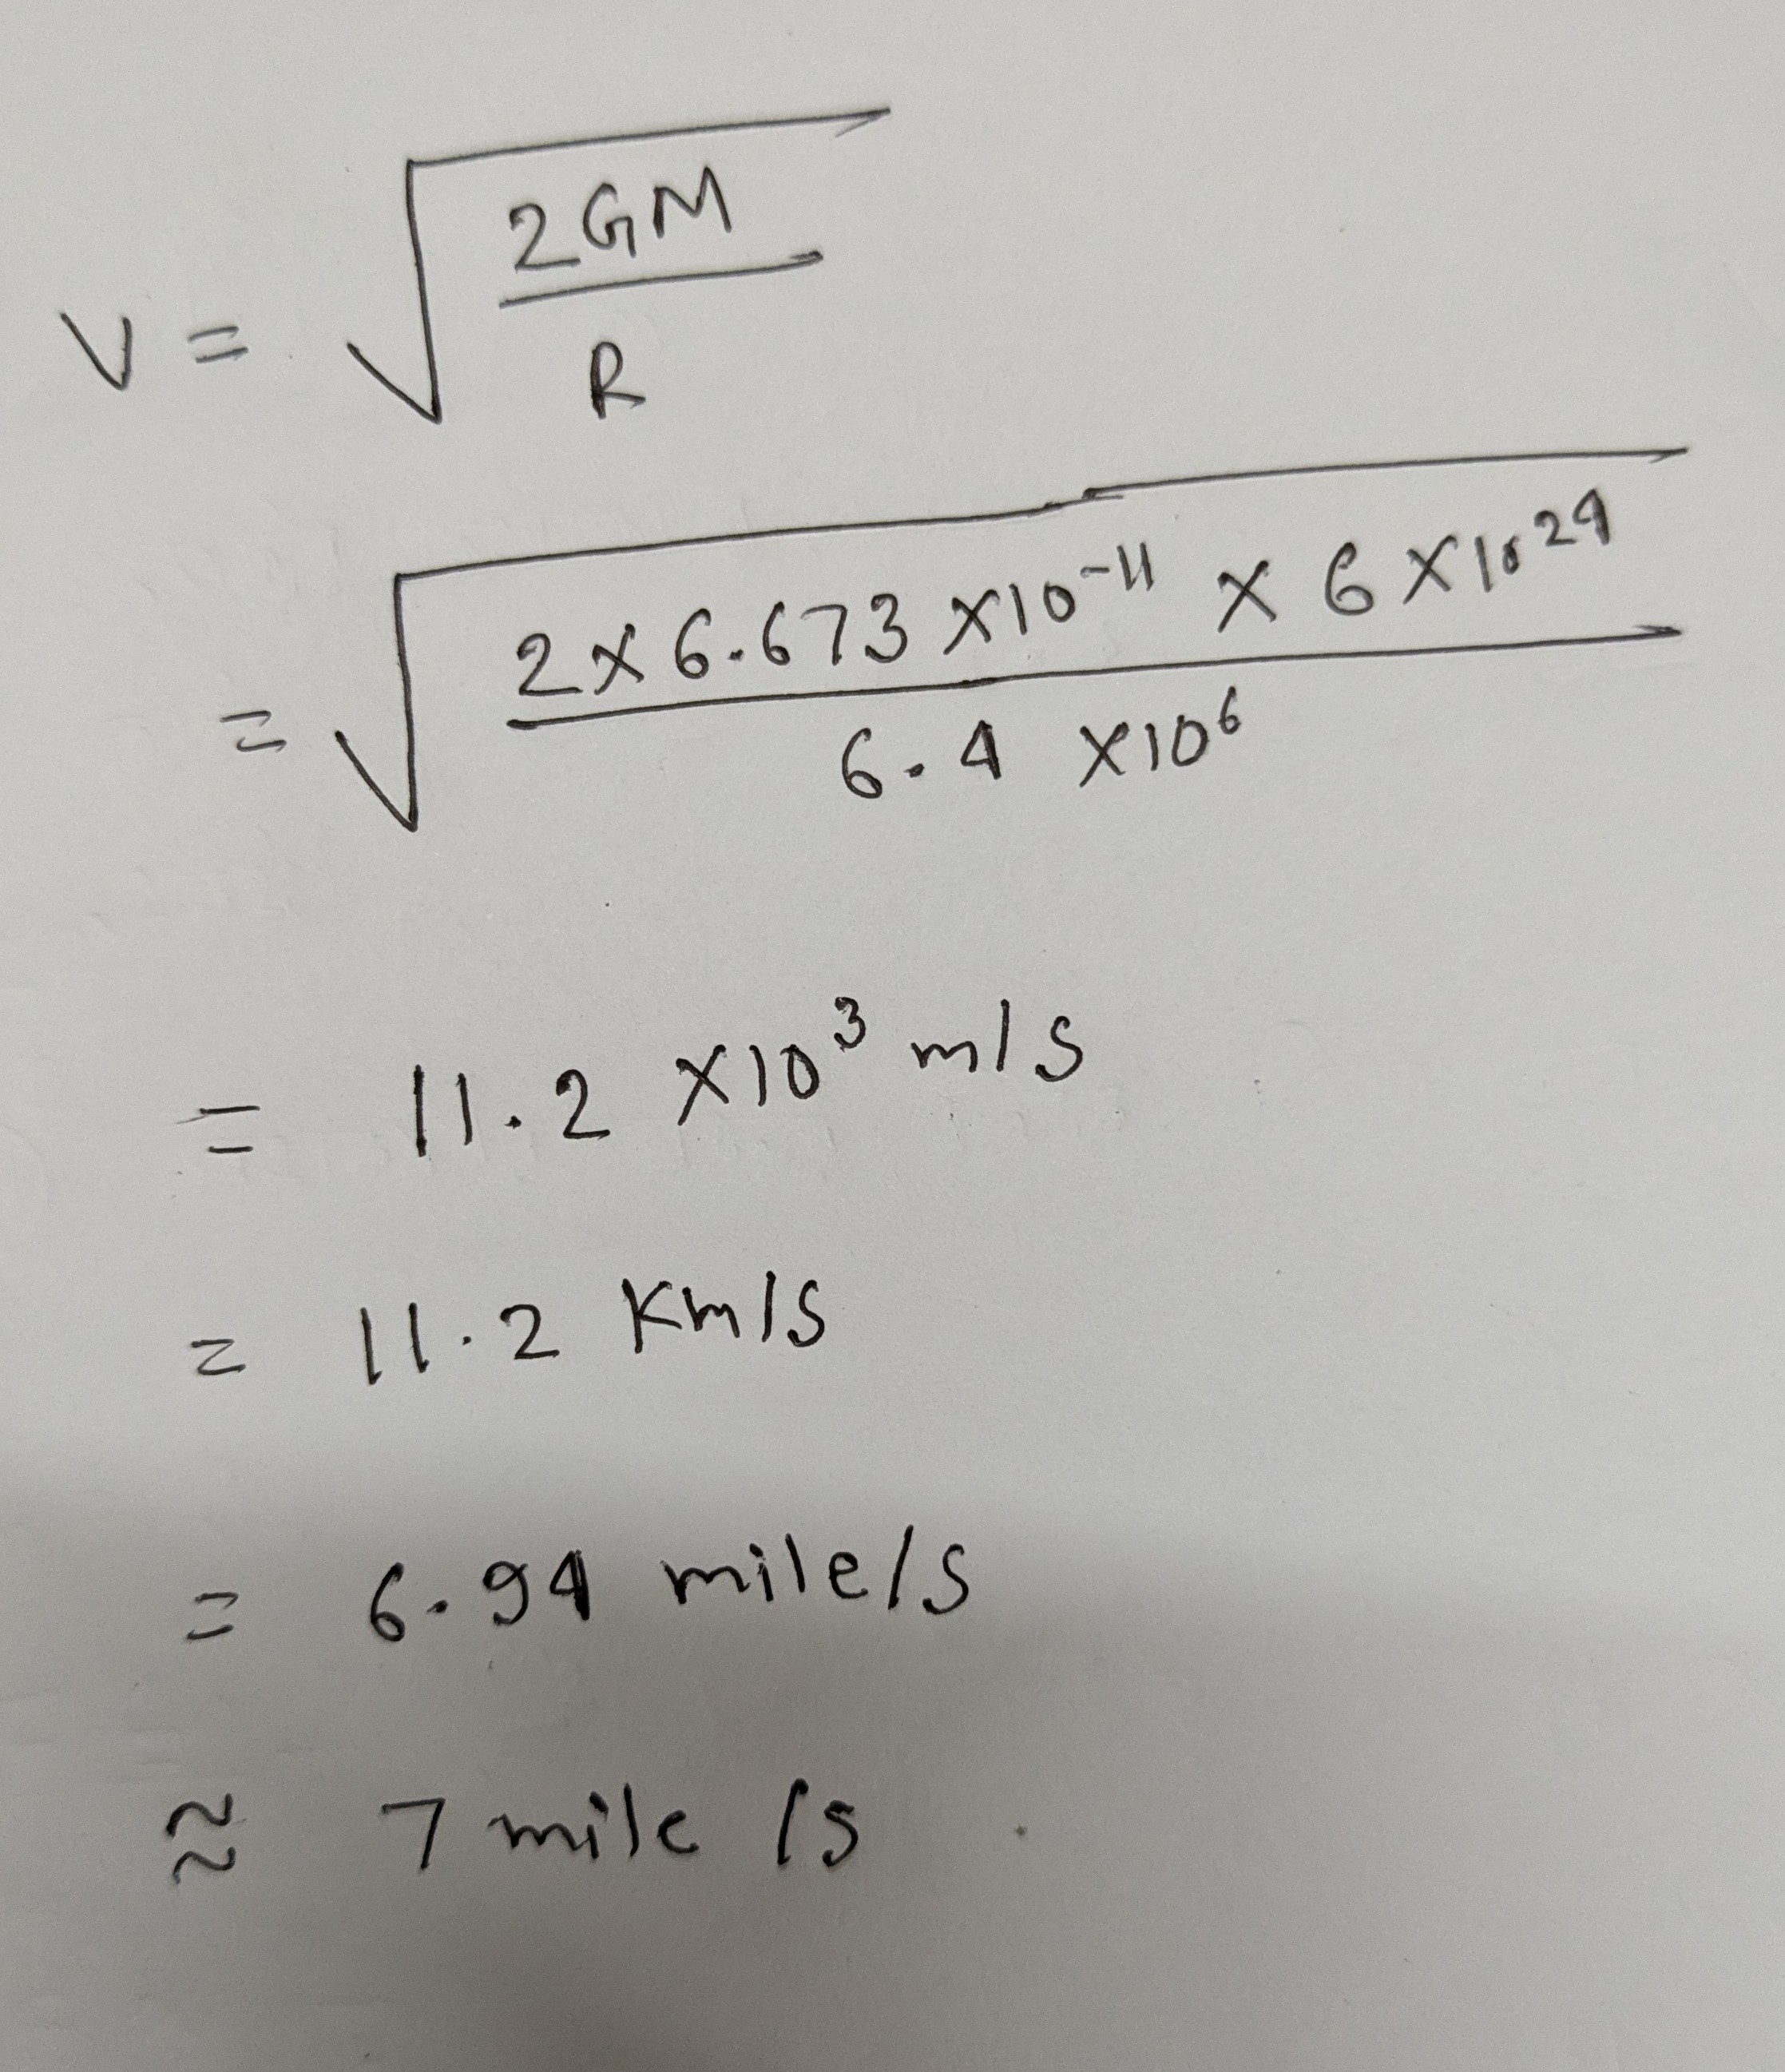 V = √(2GM / R)
= √(2 × 6.673 × 10⁻¹¹ × 6 × 10²⁴ / 6.4 × 10⁶)
= 11.2 × 10³ m/s
= 11.2 Km/s
= 6.94 mile/s
≈ 7 mile/s